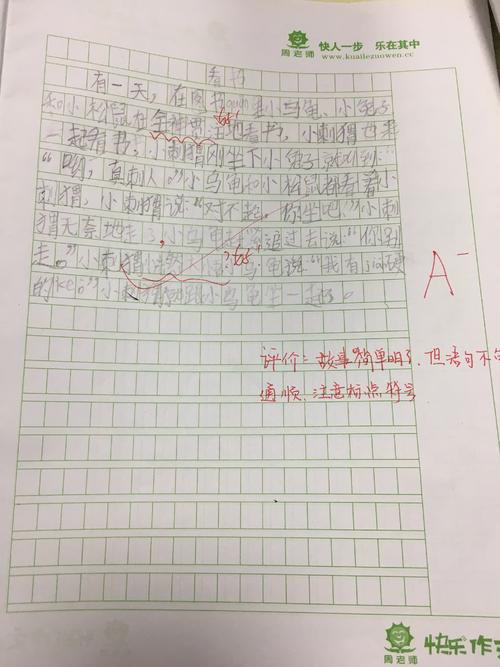 周老师 快人一步 乐在其中
www.kuailezuowen.cc
看书
有一天,在图书guǎn里小乌龟、小兔子
和小松鼠在全神贯注地看书,小刺猬也来
一起看书,小刺猬刚坐下小兔子就叫到:
“哟,真刺人。”小乌龟和小松鼠都看着小
刺猬,小刺猬说:“对不起,你坐吧。”小刺
猬无奈地走了,小乌龟追过去说:“你别
走。”小刺猬 小乌龟说:“我有 硬
的ké。”小刺猬 跟小乌龟坐一起。
A-
评价:故事简单明了,但语句不够
通顺,注意标点符号
周老师 快乐作